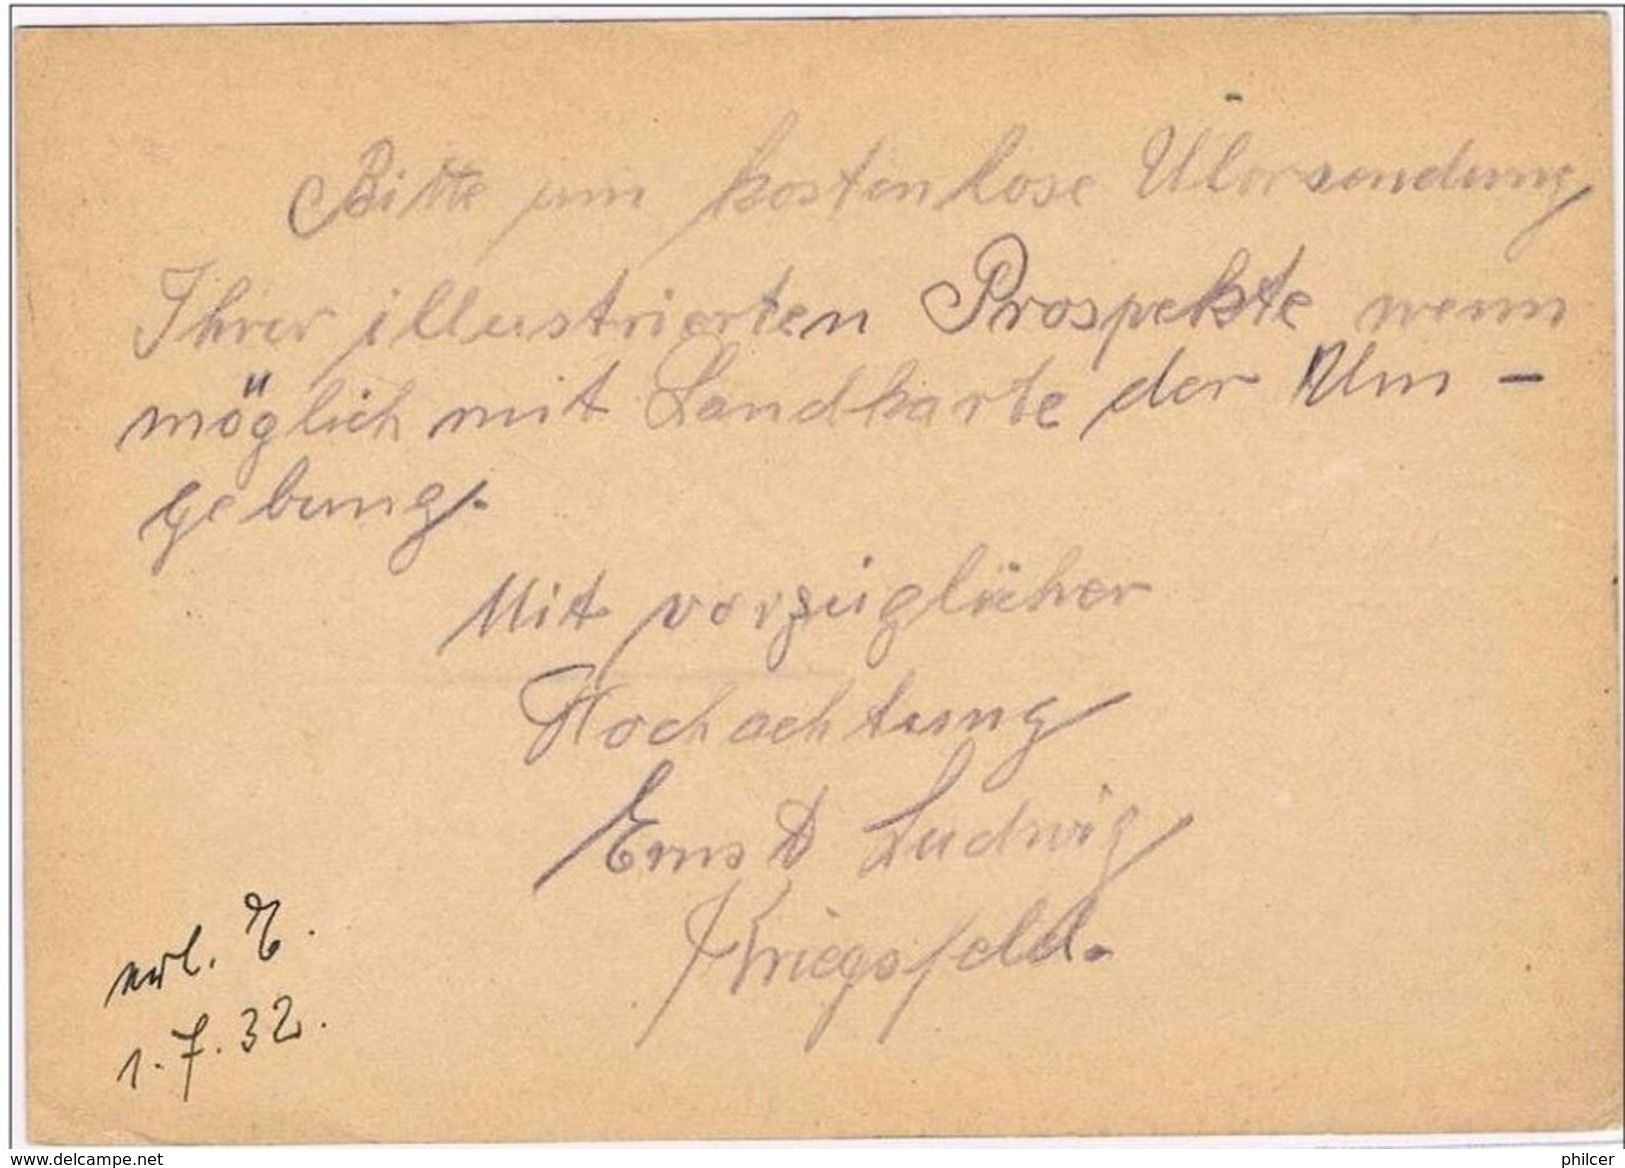 Bitte um kostenlose Übersendung
Ihrer illustrierten Prospekte wenn
möglich mit Landkarte der Um -
gebung.
Mit vorzüglicher
Hochachtung
Ernst Ludwig
Kriegsfeld.
erl. E.
1.7.32.
www.delcampe.net
philcer